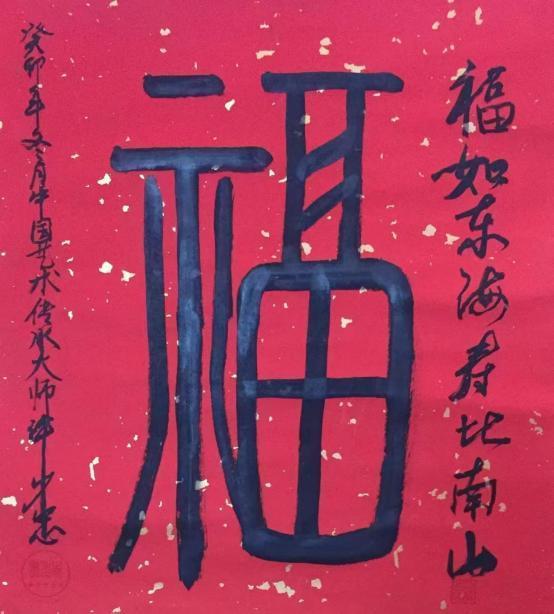 福如东海寿比南山
福
癸卯年冬月中国艺术传承大师许小忠